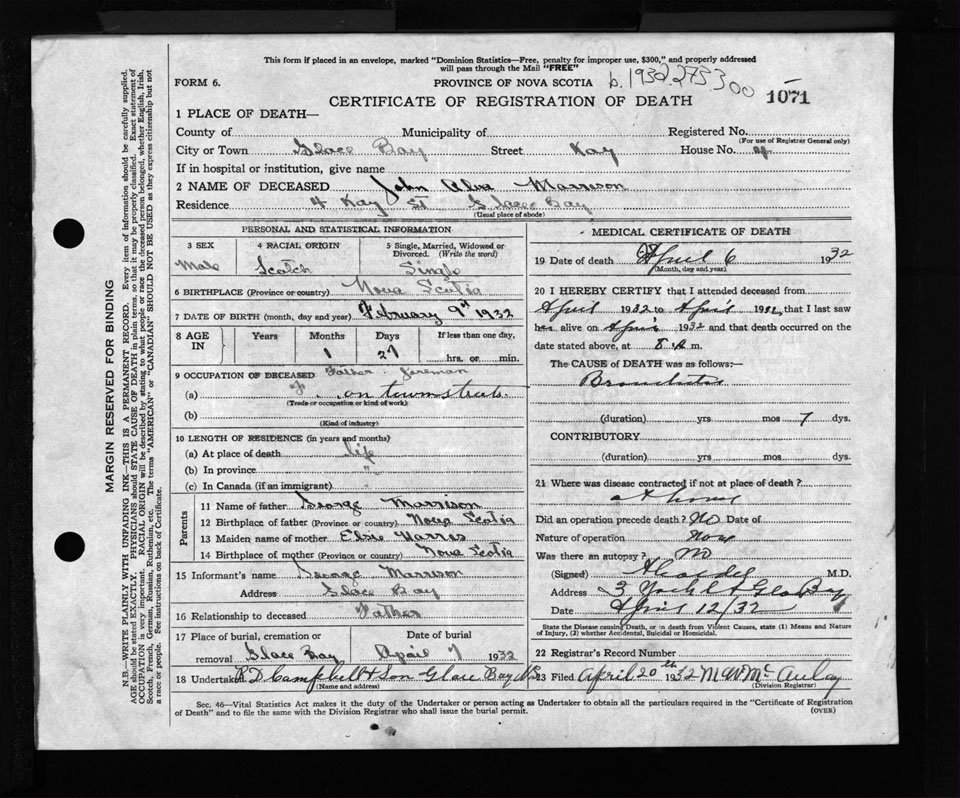 This form if placed in an envelope, marked "Dominion Statistics—Free, penalty for improper use, $300," and properly addressed
will pass through the Mail "FREE"
FORM 6. PROVINCE OF NOVA SCOTIA b.1932.273300
CERTIFICATE OF REGISTRATION OF DEATH 1071
1 PLACE OF DEATH—
County of Municipality of Registered No.
(For use of Registrar General only)
City or Town Glace Bay Street Kay House No. 4
If in hospital or institution, give name
2 NAME OF DECEASED John Alex Marrison
Residence 4 Kay St Glace Bay
(Usual place of abode)
PERSONAL AND STATISTICAL INFORMATION
3 SEX 4 RACIAL ORIGIN 5 Single, Married, Widowed or
Divorced. (Write the word)
Male Scotch Single
6 BIRTHPLACE (Province or country) Nova Scotia
7 DATE OF BIRTH (month, day and year) February 9th 1932
8 AGE IN Years Months Days If less than one day,
1 27 hrs. or min.
9 OCCUPATION OF DECEASED Father
(a) on town streets
(Trade or occupation or kind of work)
(b)
(Kind of industry)
10 LENGTH OF RESIDENCE (in years and months)
(a) At place of death life
(b) In province "
(c) In Canada (if an immigrant) "
Parents
11 Name of father George Marrison
12 Birthplace of father (Province or country) Nova Scotia
13 Maiden name of mother Elsie Harris
14 Birthplace of mother (Province or country) Nova Scotia
15 Informant's name George Marrison
Address Glace Bay
16 Relationship to deceased Father
17 Place of burial, cremation or Date of burial
removal Glace Bay April 7 1932
18 Undertaker R D Campbell & Son Glace Bay N.S.
(Name and address)
MEDICAL CERTIFICATE OF DEATH
19 Date of death April 6 1932
(Month, day and year)
20 I HEREBY CERTIFY that I attended deceased from
April 1932 to April 1932, that I last saw
h alive on April 1932 and that death occurred on
the date stated above, at 8 m.
The CAUSE OF DEATH was as follows:—
Bronchitis
(duration) yrs mos 7 dys.
CONTRIBUTORY
(duration) yrs mos dys.
21 Where was disease contracted if not at place of death?
at home
Did an operation precede death? No Date of
Nature of operation None
Was there an autopsy? No
(Signed) M.D.
Address 3 Glace Bay
Date April 12/32
State the Disease causing Death, or in death from Violent Causes, state (1) Means and Nature
of Injury, (2) whether Accidental, Suicidal or Homicidal.
22 Registrar's Record Number
23 Filed April 20th 1932 M W McAulay
(Division Registrar)
Sec. 46—Vital Statistics Act makes it the duty of the Undertaker or person acting as Undertaker to obtain all the particulars required in the "Certificate of Registration
of Death" and to file the same with the Division Registrar who shall issue the burial permit. (OVER)
MARGIN RESERVED FOR BINDING
N.B.—WRITE PLAINLY WITH UNFADING INK—THIS IS A PERMANENT RECORD. Every item of information should be carefully supplied.
AGE should be stated EXACTLY. PHYSICIANS should STATE CAUSE OF DEATH in plain terms, so that it may be properly classified. Exact statement of
OCCUPATION is very important. RACIAL ORIGIN will be described by stating to what people or race the deceased person belonged, whether English, Irish,
Scotch, French, German, Russian, Ruthenian, etc. The terms "AMERICAN" or "CANADIAN" SHOULD NOT BE USED as they express citizenship but not
a race or people. See instructions on back of Certificate.